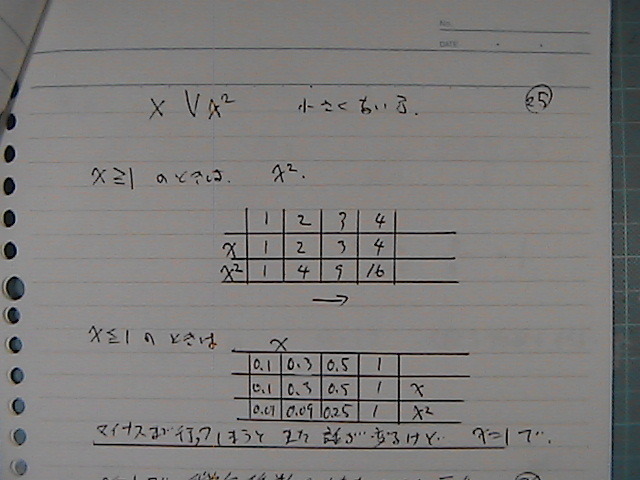 No.
DATE
x ∨ x² 小さくおいる. 25
x≧1 のときは. x².
1 2 3 4
x 1 2 3 4
x² 1 4 9 16
→
x≦1 のときは x
0.1 0.3 0.5 1
0.1 0.3 0.5 1 x
0.01 0.09 0.25 1 x²
マイナスまで行ってしまうと また 話が変るけど… x=1 で…